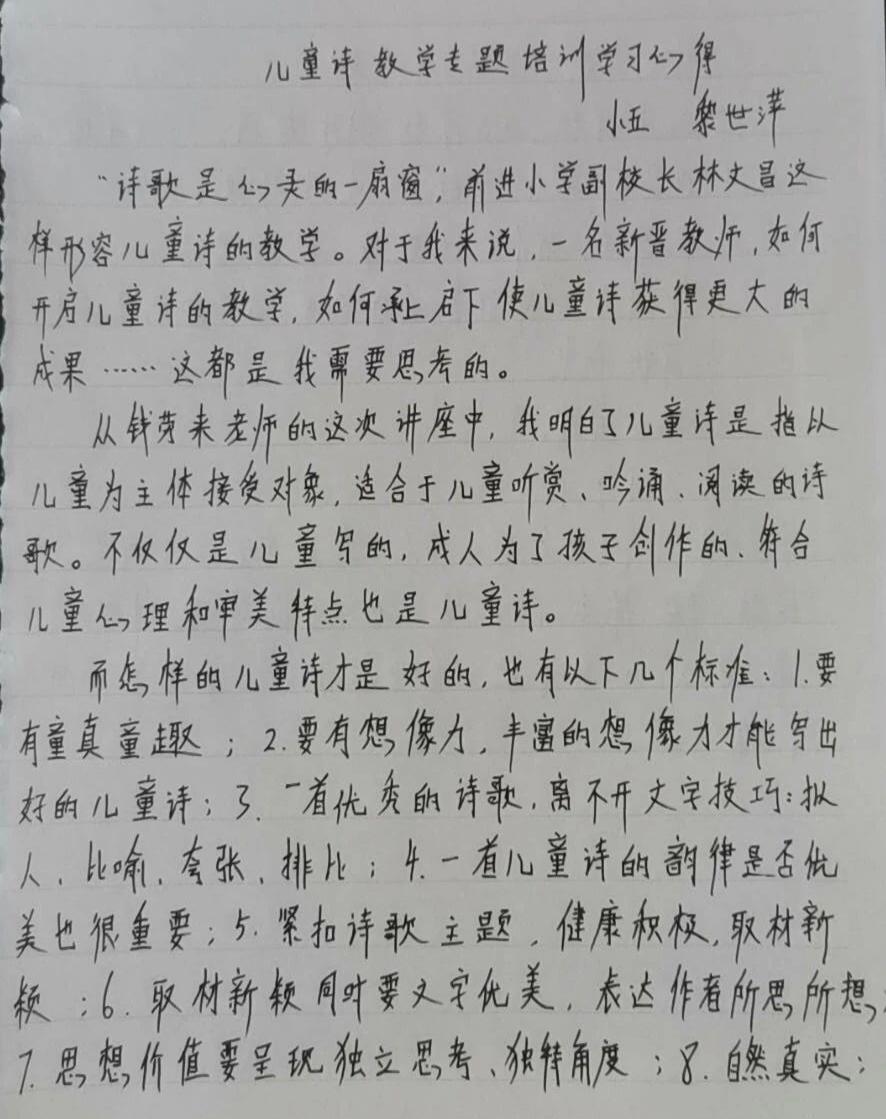 儿童诗教学专题培训学习心得
小五 黎世萍
“诗歌是心灵的一扇窗”，前进小学副校长林文昌这
样形容儿童诗的教学。对于我来说，一名新晋教师，如何
开启儿童诗的教学，如何承上启下使儿童诗获得更大的
成果……这都是我需要思考的。
从钱芳来老师的这次讲座中，我明白了儿童诗是指以
儿童为主体接受对象，适合于儿童听赏、吟诵、阅读的诗
歌。不仅仅是儿童写的，成人为了孩子创作的、符合
儿童心理和审美特点也是儿童诗。
而怎样的儿童诗才是好的，也有以下几个标准：1.要
有童真童趣；2.要有想像力，丰富的想像力才能写出
好的儿童诗；3.一首优秀的诗歌，离不开文字技巧：拟
人、比喻、夸张、排比；4.一首儿童诗的韵律是否优
美也很重要；5.紧扣诗歌主题，健康积极，取材新
颖；6.取材新颖同时要文字优美，表达作者所思所想；
7.思想价值要呈现独立思考、独特角度；8.自然真实；